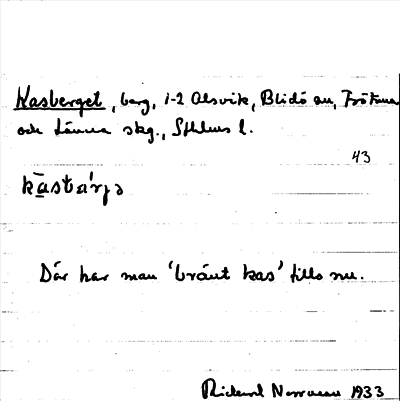 Kasberget, berg, 1-2 Alsvik, Blidö sn, Frötuna
och Länna skg., Sthlms l.
43
Där har man 'bränt kas' tills nu.
Rickard 1933